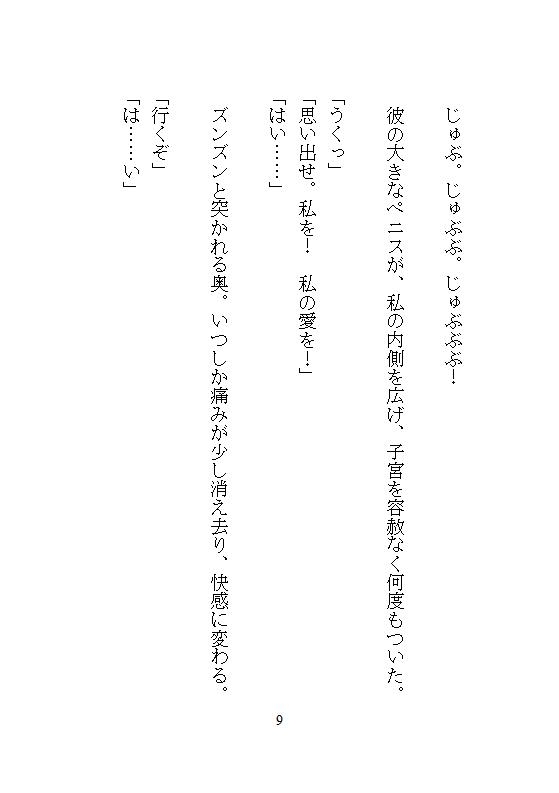 じゅぶ。じゅぶぶ。じゅぶぶぶ！
彼の大きなペニスが、私の内側を広げ、子宮を容赦なく何度もついた。
「うくっ」
「思い出せ。私を！　私の愛を！」
「はい……」
ズンズンと突かれる奥。いつしか痛みが少し消え去り、快感に変わる。
「行くぞ」
「は……い」
9